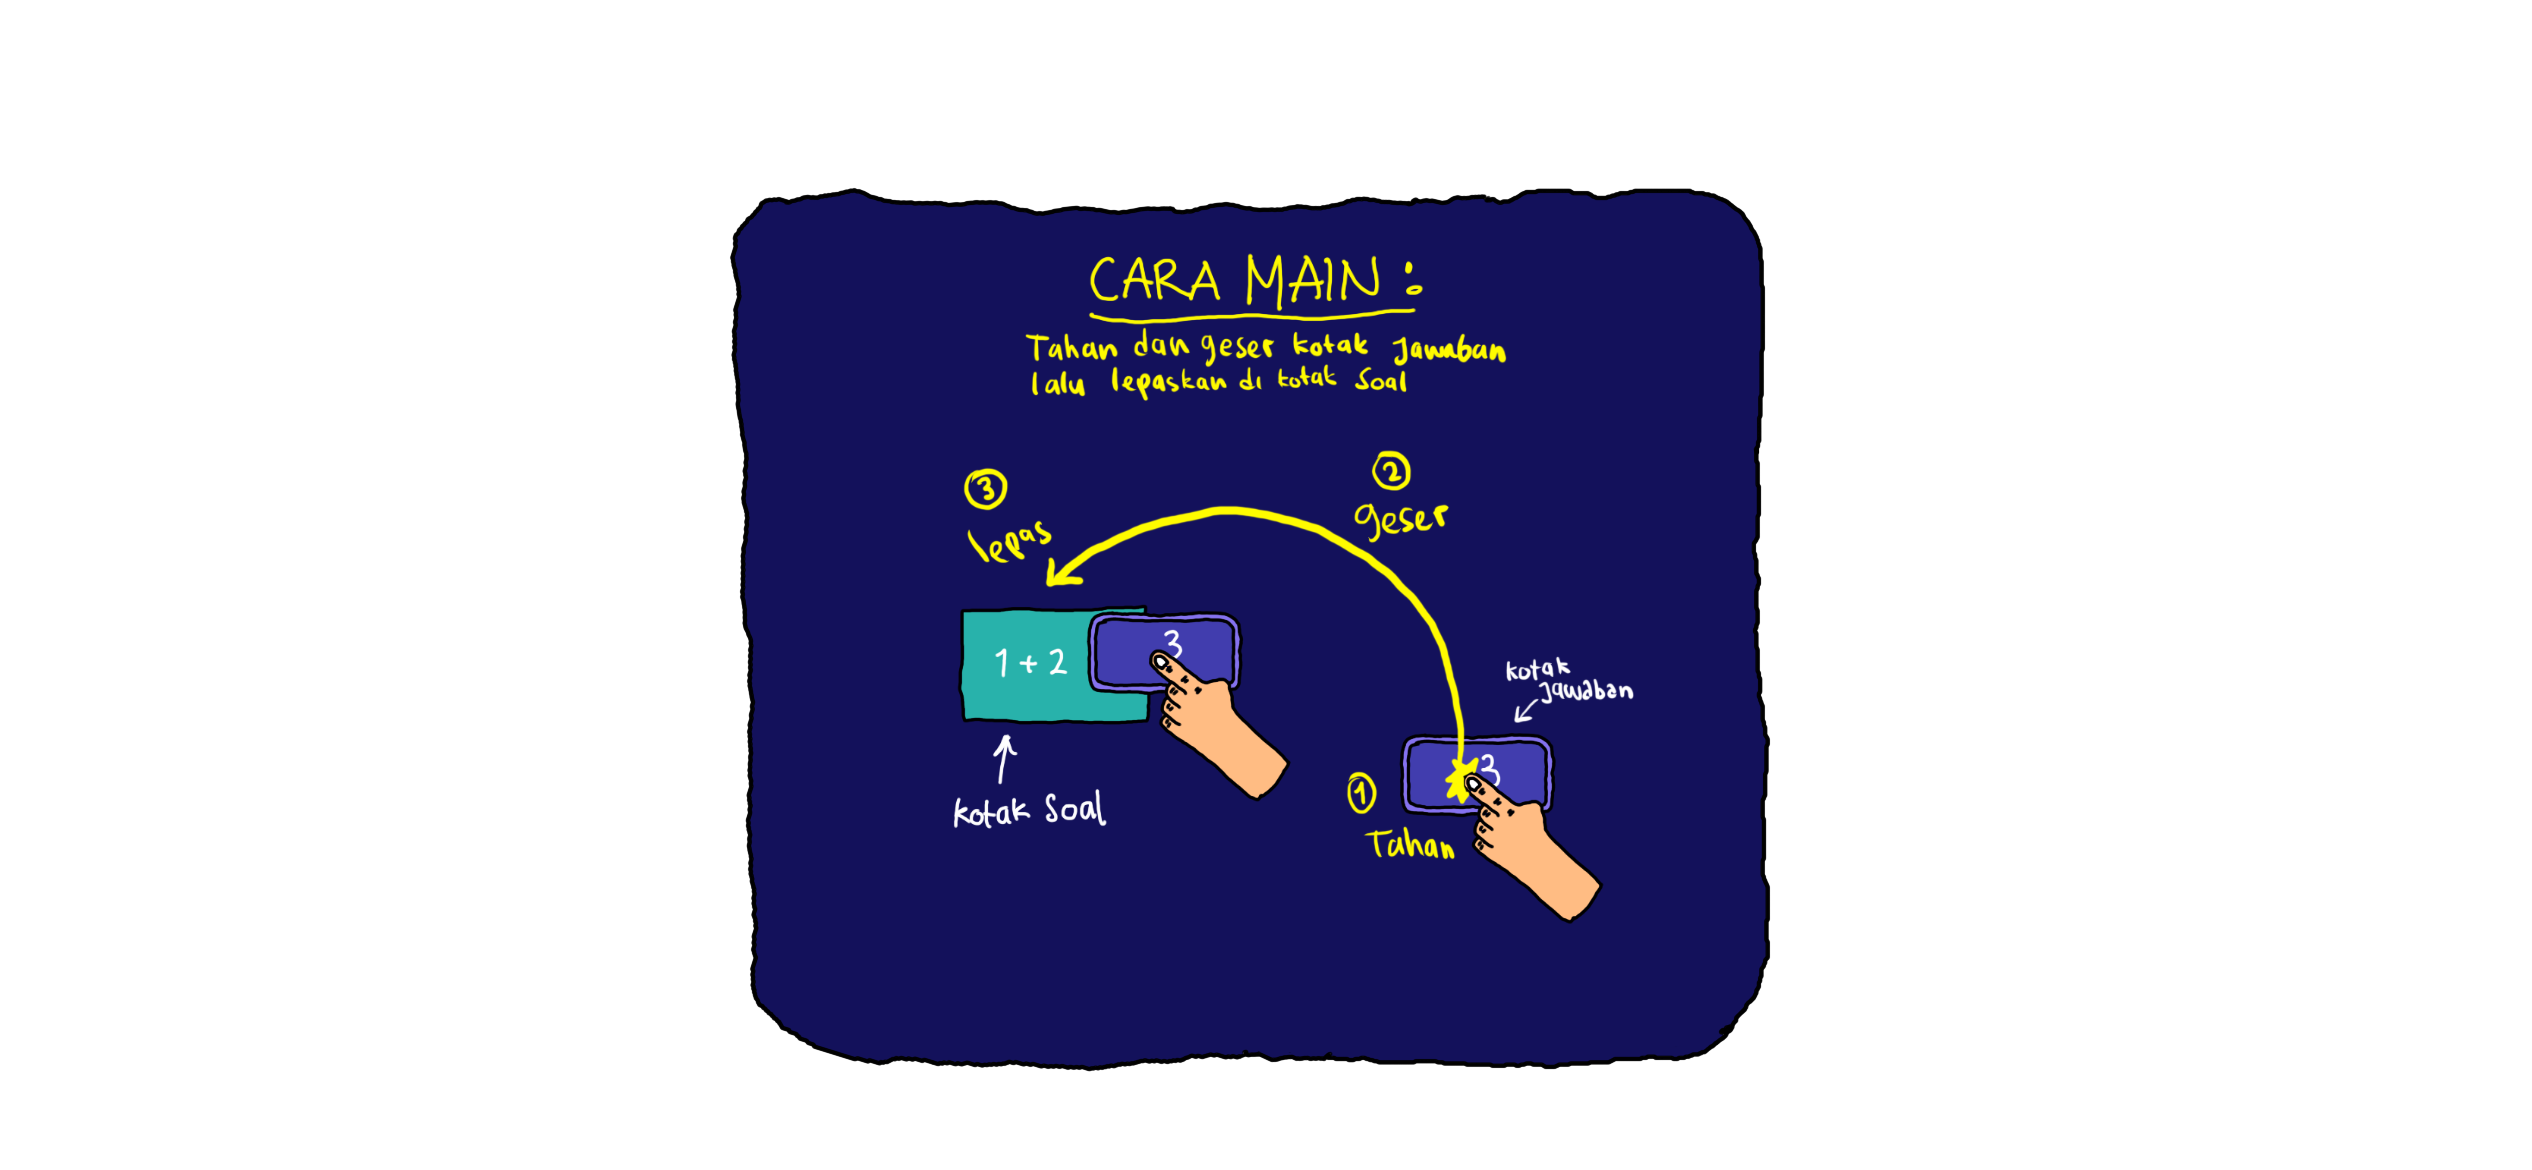 CARA MAIN :
Tahan dan geser kotak jawaban
lalu lepaskan di kotak soal
3
lepas
2
geser
1 + 2
3
kotak soal
kotak
jawaban
3
1
Tahan